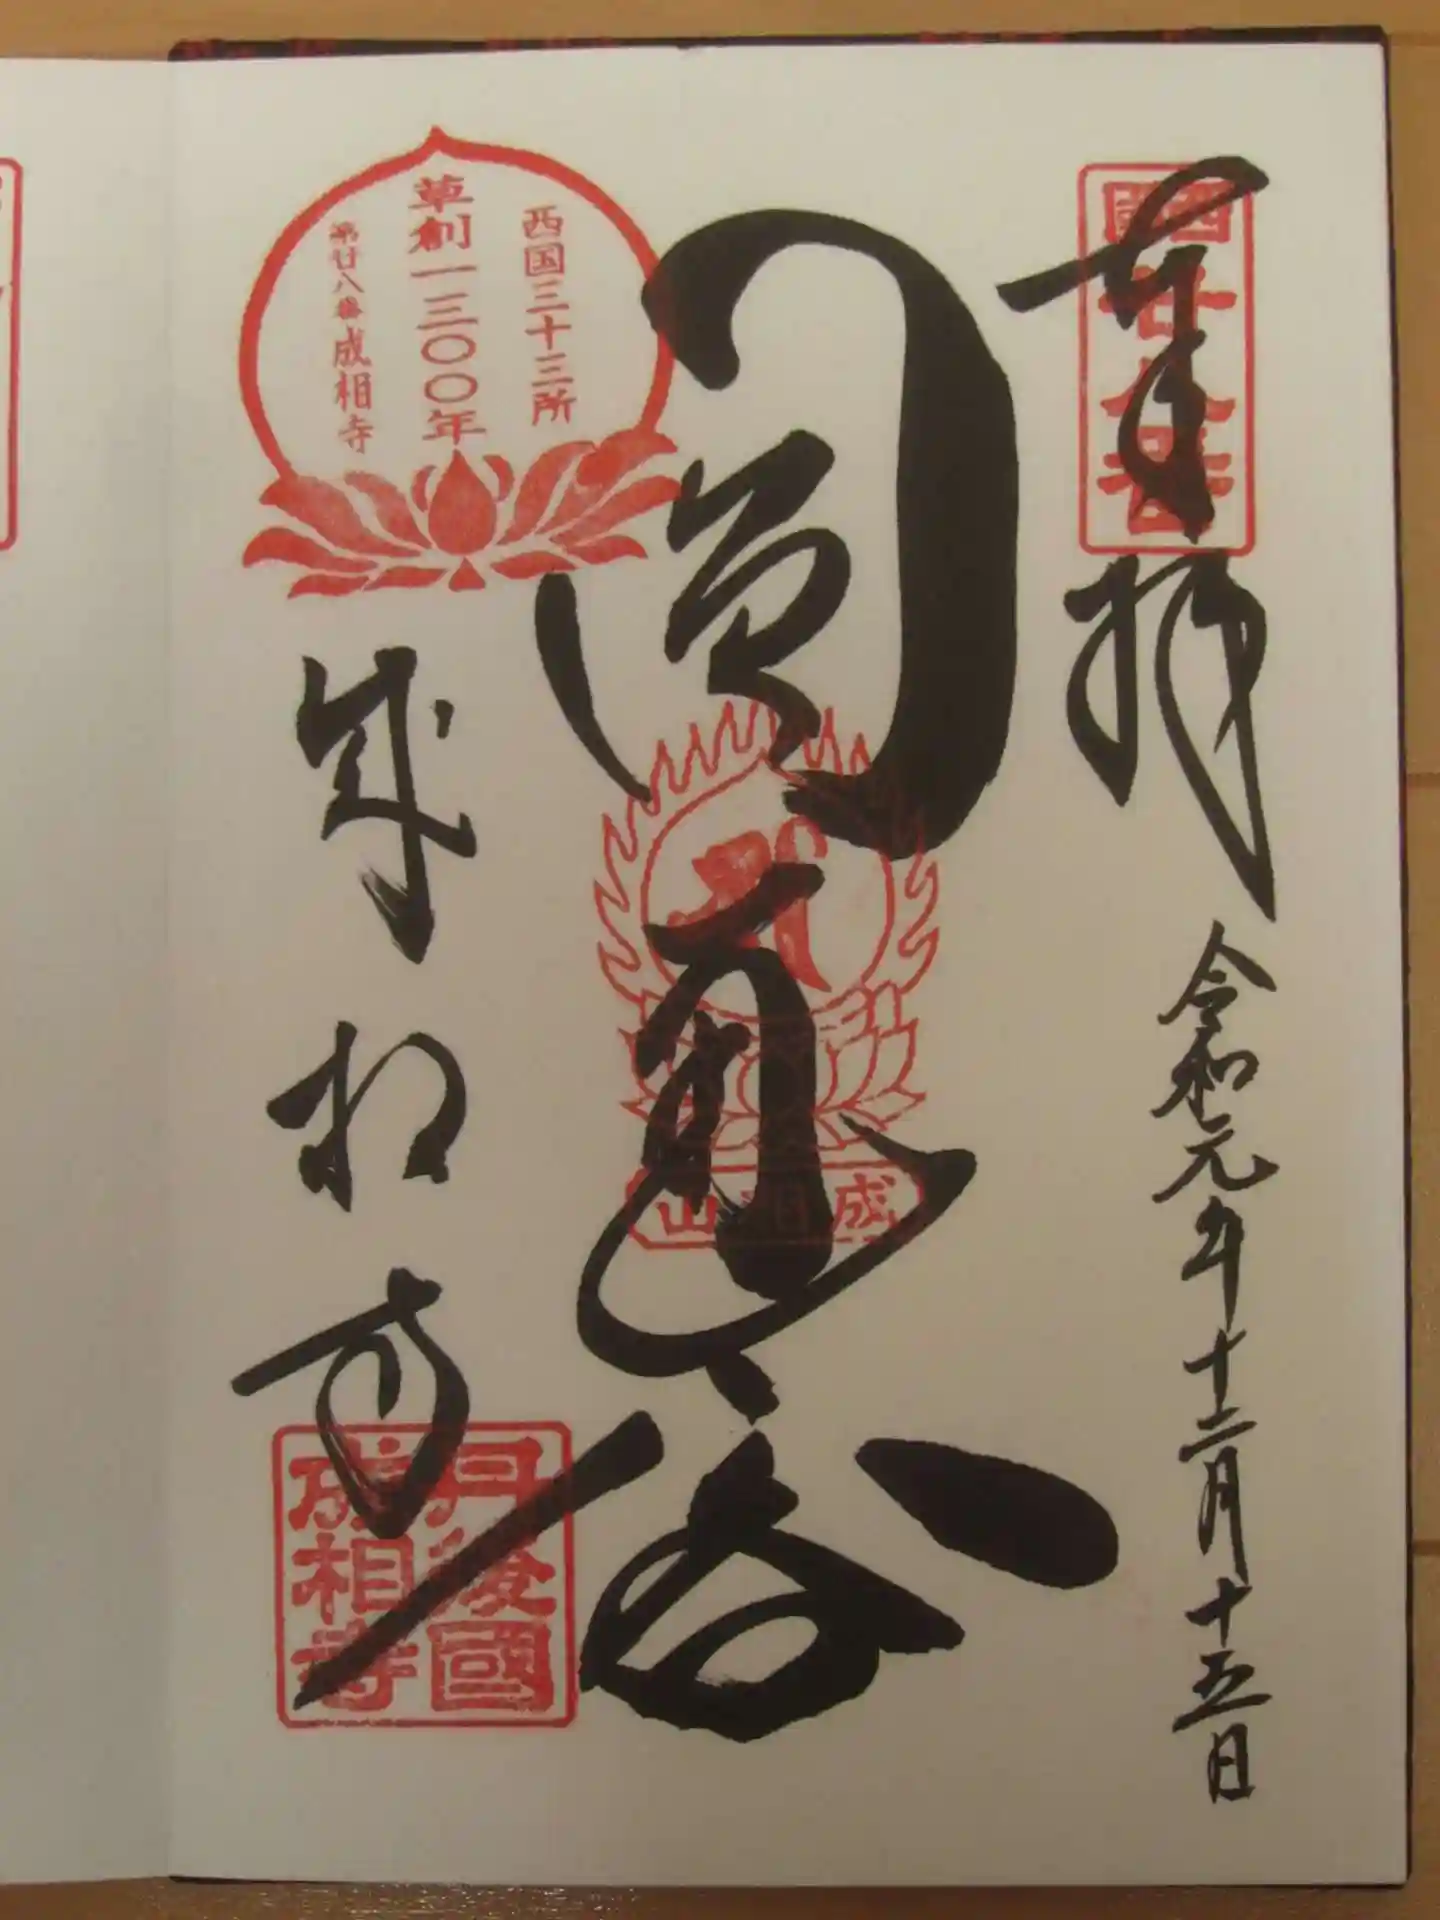 西國廿八番
奉拝
令和元年十二月十五日
圓通
成相山
西国三十三所
草創一三〇〇年
第廿八番成相寺
成相寺
丹後國
成相寺